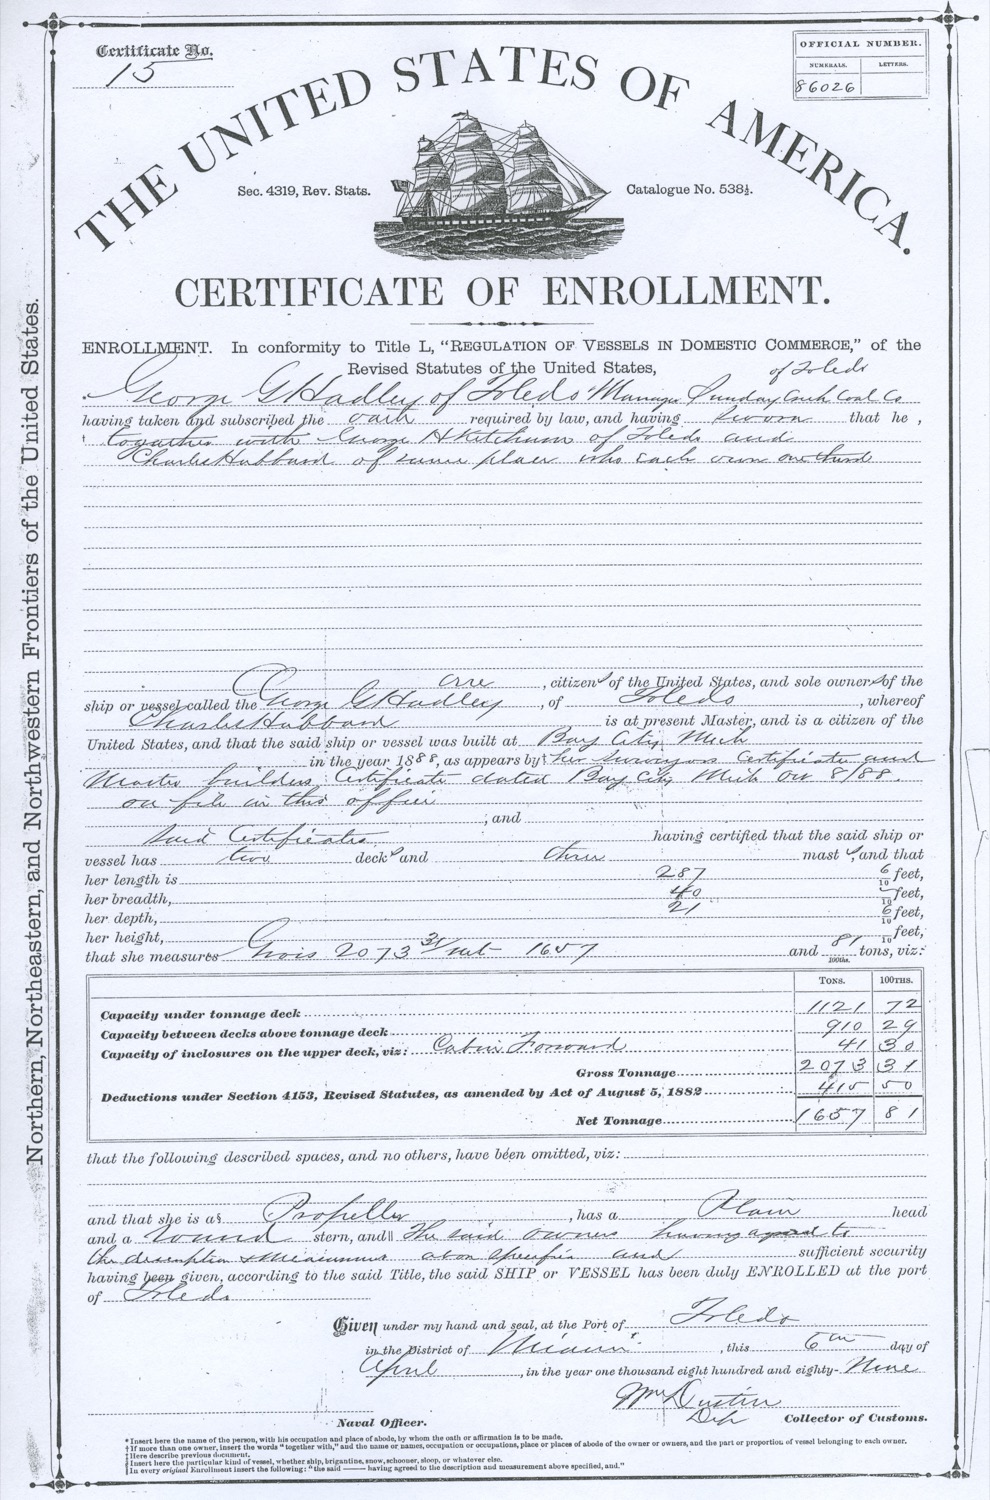 Certificate No.
15
OFFICIAL NUMBER.
NUMERALS. LETTERS.
86026
THE UNITED STATES OF AMERICA.
Sec. 4319, Rev. Stats. Catalogue No. 538½.
CERTIFICATE OF ENROLLMENT.
Northern, Northeastern, and Northwestern Frontiers of the United States.
ENROLLMENT. In conformity to Title L, "REGULATION OF VESSELS IN DOMESTIC COMMERCE," of the
Revised Statutes of the United States, of Toledo
* George G Hadley of Toledo Manager Sunday Creek Coal Co
having taken and subscribed the oath required by law, and having sworn that he ,
† together with George H Ketchum of Toledo and
Charles Hubbard of same place who each own one third
are , citizens of the United States, and sole owners of the
ship or vessel called the George G Hadley , of Toledo , whereof
Charles Hubbard is at present Master, and is a citizen of the
United States, and that the said ship or vessel was built at Bay City Mich
in the year 1888, as appears by‡ her surveyors Certificate and
Master builders Certificate dated Bay City Mich Oct 8/88.
on file in this office
; and
said Certificates having certified that the said ship or
vessel has two decks and three masts, and that
her length is 287 6/10 feet,
her breadth, 40 /10 feet,
her depth, 21 6/10 feet,
her height, /10 feet,
that she measures Gross 2073 31/ net 1657 and 81 100ths. tons, viz:
TONS. 100THS.
Capacity under tonnage deck 1121 72
Capacity between decks above tonnage deck 910 29
Capacity of inclosures on the upper deck, viz: Cabin Forward 41 30
Gross Tonnage 2073 31
Deductions under Section 4153, Revised Statutes, as amended by Act of August 5, 1882 415 50
Net Tonnage 1657 81
that the following described spaces, and no others, have been omitted, viz:
and that she is a§ Propeller , has a Plain head
and a round stern, and‖ the said owners having agreed to
the description & Measurement above specified and sufficient security
having been given, according to the said Title, the said SHIP or VESSEL has been duly ENROLLED at the port
of Toledo
Given under my hand and seal, at the Port of Toledo
in the District of Miami , this 6th day of
April , in the year one thousand eight hundred and eighty- Nine
Wm Dustin
Naval Officer. Dep Collector of Customs.
* Insert here the name of the person, with his occupation and place of abode, by whom the oath or affirmation is to be made.
† If more than one owner, insert the words "together with," and the name or names, occupation or occupations, place or places of abode of the owner or owners, and the part or proportion of vessel belonging to each owner.
‡ Here describe previous document.
§ Insert here the particular kind of vessel, whether ship, brigantine, snow, schooner, sloop, or whatever else.
‖ In every original Enrollment insert the following: "the said —— having agreed to the description and measurement above specified, and."